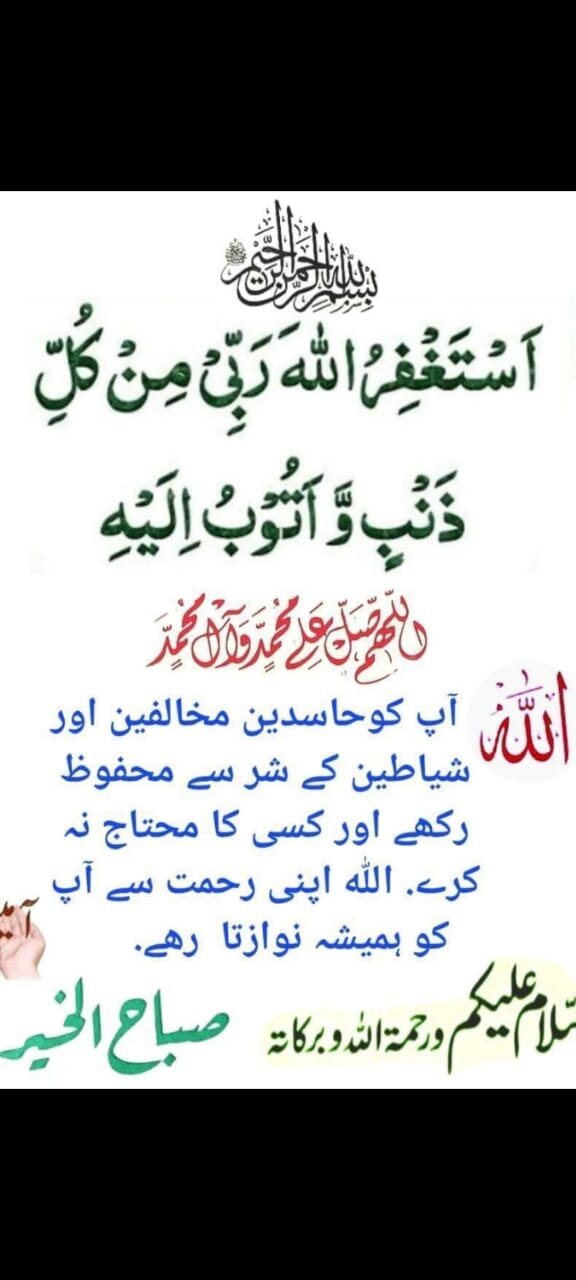 بِسْمِ اللهِ الرَّحْمٰنِ الرَّحِيْمِ
اَسْتَغْفِرُ اللهَ رَبِّىْ مِنْ كُلِّ
ذَنْبٍ وَّ اَتُوْبُ اِلَيْهِ
اللّٰهُمَّ صَلِّ عَلٰى مُحَمَّدٍ وَّآلِ مُحَمَّدٍ
اللّٰه
آپ کوحاسدین مخالفین اور
شیاطین کے شر سے محفوظ
رکھے اور کسی کا محتاج نہ
کرے. اللّٰہ اپنی رحمت سے آپ
کو ہمیشہ نوازتا رھے.
سّلام علیکم ورحمۃ اللہ وبرکاتہ
صباح الخیر